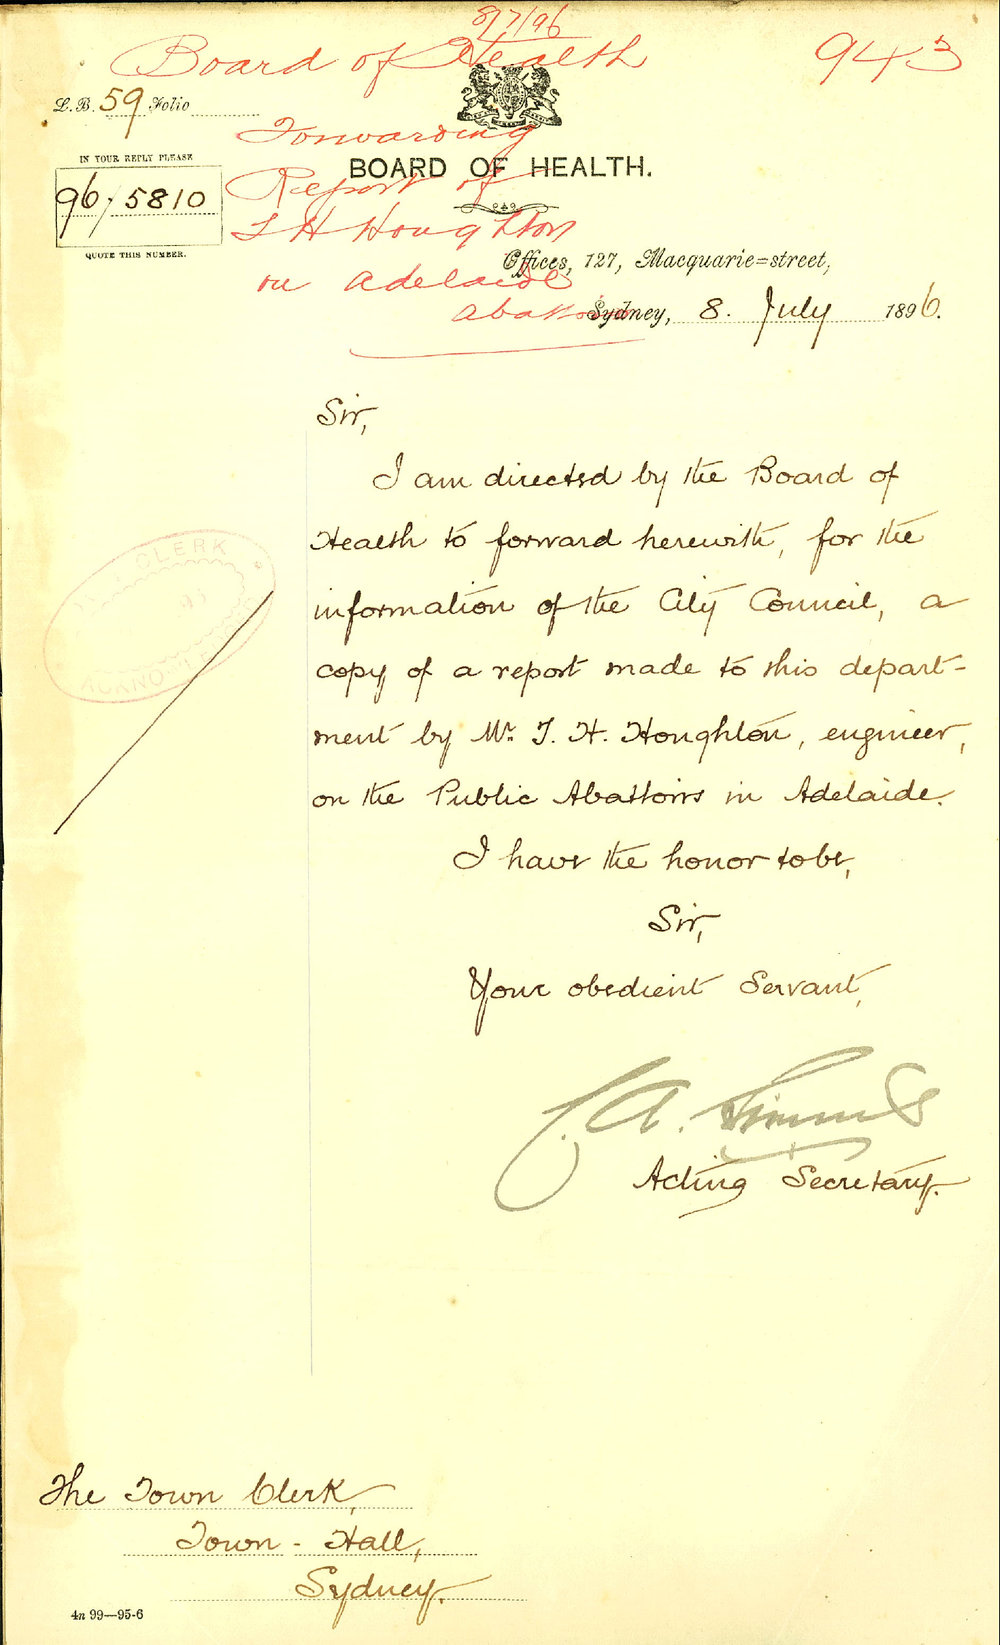 8/7/96
Board of Health 943
L.B. 59 Folio
Forwarding
IN YOUR REPLY PLEASE
BOARD OF HEALTH.
96/5810
Report of
QUOTE THIS NUMBER.
T H Houghton
Offices, 127, Macquarie=street,
on Adelaide
Abattoirs
Sydney, 8. July 1896.
Sir,
I am directed by the Board of
Health to forward herewith, for the
information of the City Council, a
copy of a report made to this depart-
ment by Mr. T. H. Houghton, engineer,
on the Public Abattoirs in Adelaide.
I have the honor to be,
Sir,
Your obedient Servant,
Acting Secretary.
CLERK
The Town Clerk,
Town - Hall,
Sydney.
4n 99—95-6